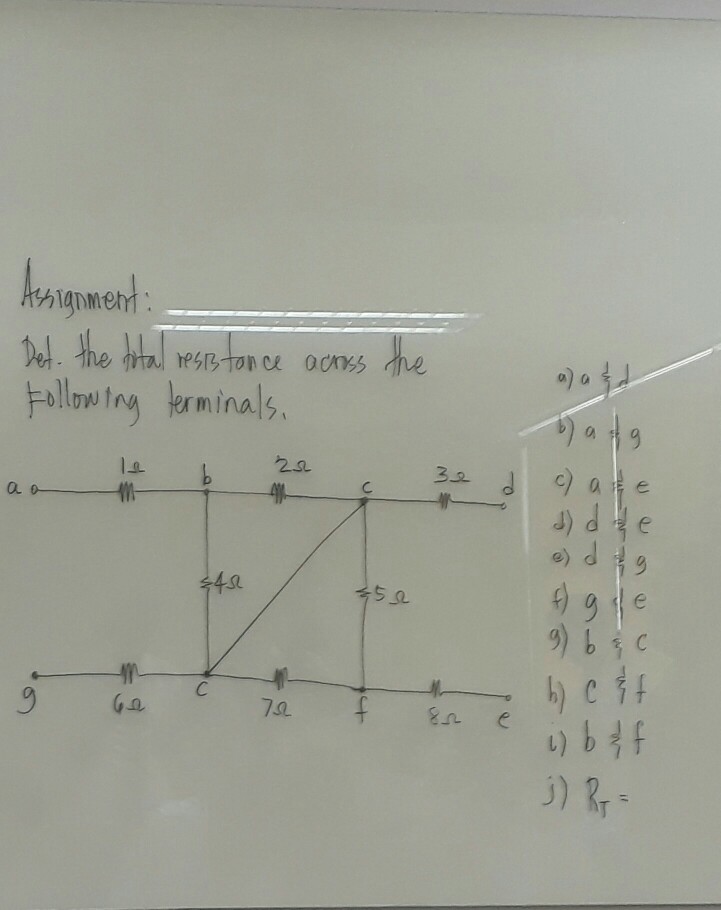 Assignment:
Det. the total resistance across the
Following terminals.
a) a & d
b) a & g
c) a & e
d) d & e
e) d & g
f) g & e
g) b & c
h) c & f
i) b & f
j) R_T =
1Ω 2Ω 3Ω
a b c d
4Ω 5Ω
g c f e
6Ω 7Ω 8Ω